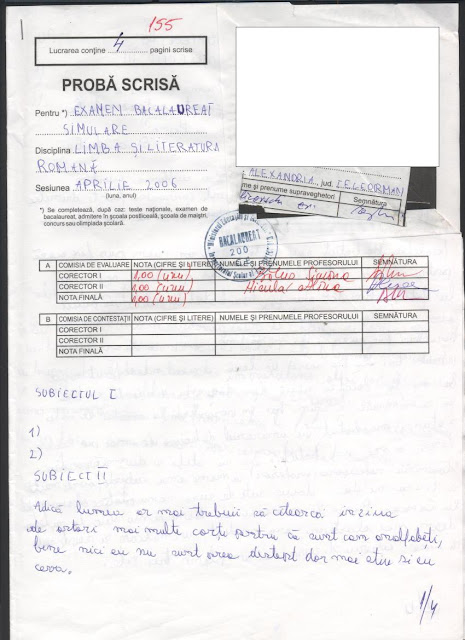 155
Lucrarea conține 4 pagini scrise
PROBĂ SCRISĂ
Pentru *) EXAMEN BACALAUREAT
SIMULARE
Disciplina LIMBA ȘI LITERATURA
ROMANĂ
Sesiunea APRILIE 2006
(luna, anul)
*) Se completează, după caz: teste naționale, examen de
bacalaureat, admitere în școala postliceală, școala de maiștri,
concurs sau olimpiada școlară.
ALEXANDRIA, jud. TELEORMAN
me și prenume supraveghetori Semnătura
BACALAUREAT
200
A COMISIA DE EVALUARE NOTA (CIFRE ȘI LITERE) NUMELE ȘI PRENUMELE PROFESORULUI SEMNĂTURA
CORECTOR I 1,00 (unu)
CORECTOR II 1,00 (unu)
NOTA FINALĂ 1,00 (unu)
B COMISIA DE CONTESTAȚII NOTA (CIFRE ȘI LITERE) NUMELE ȘI PRENUMELE PROFESORULUI SEMNĂTURA
CORECTOR I
CORECTOR II
NOTA FINALĂ
SUBIECTUL I
1)
2)
SUBIECT II
Adică lumea ar mai trebuii să citească in ziua
de astazi mai multe carți pentru că sunt cam analfabeți,
bine nici eu nu sunt prea distept dar mai stiu si eu
ceva.
1/4